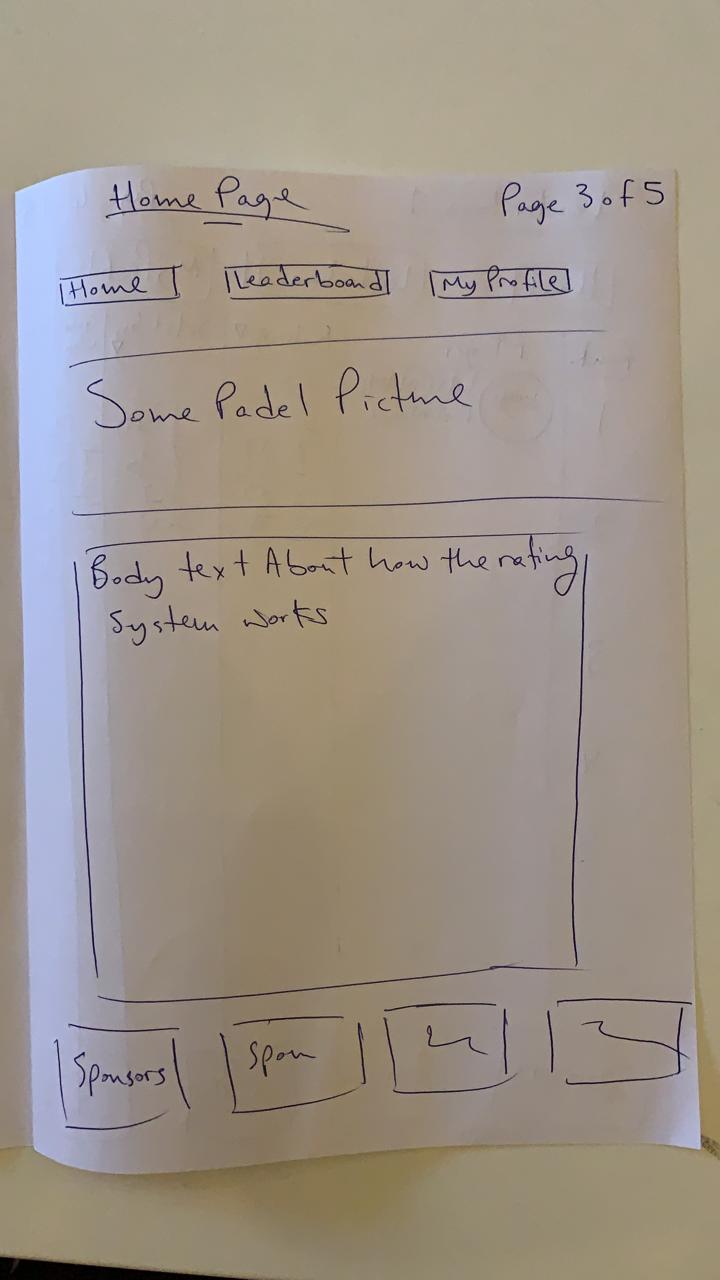 Home Page
Page 3 of 5
Home
Leaderboard
My Profile
Some Padel Picture
Body text About how the rating
System works
Sponsors
Spon